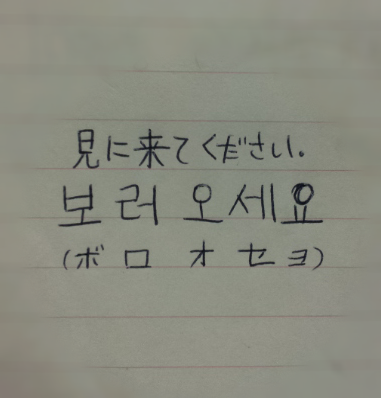 見に来てください.
보러 오세요
(ボロ オセヨ)